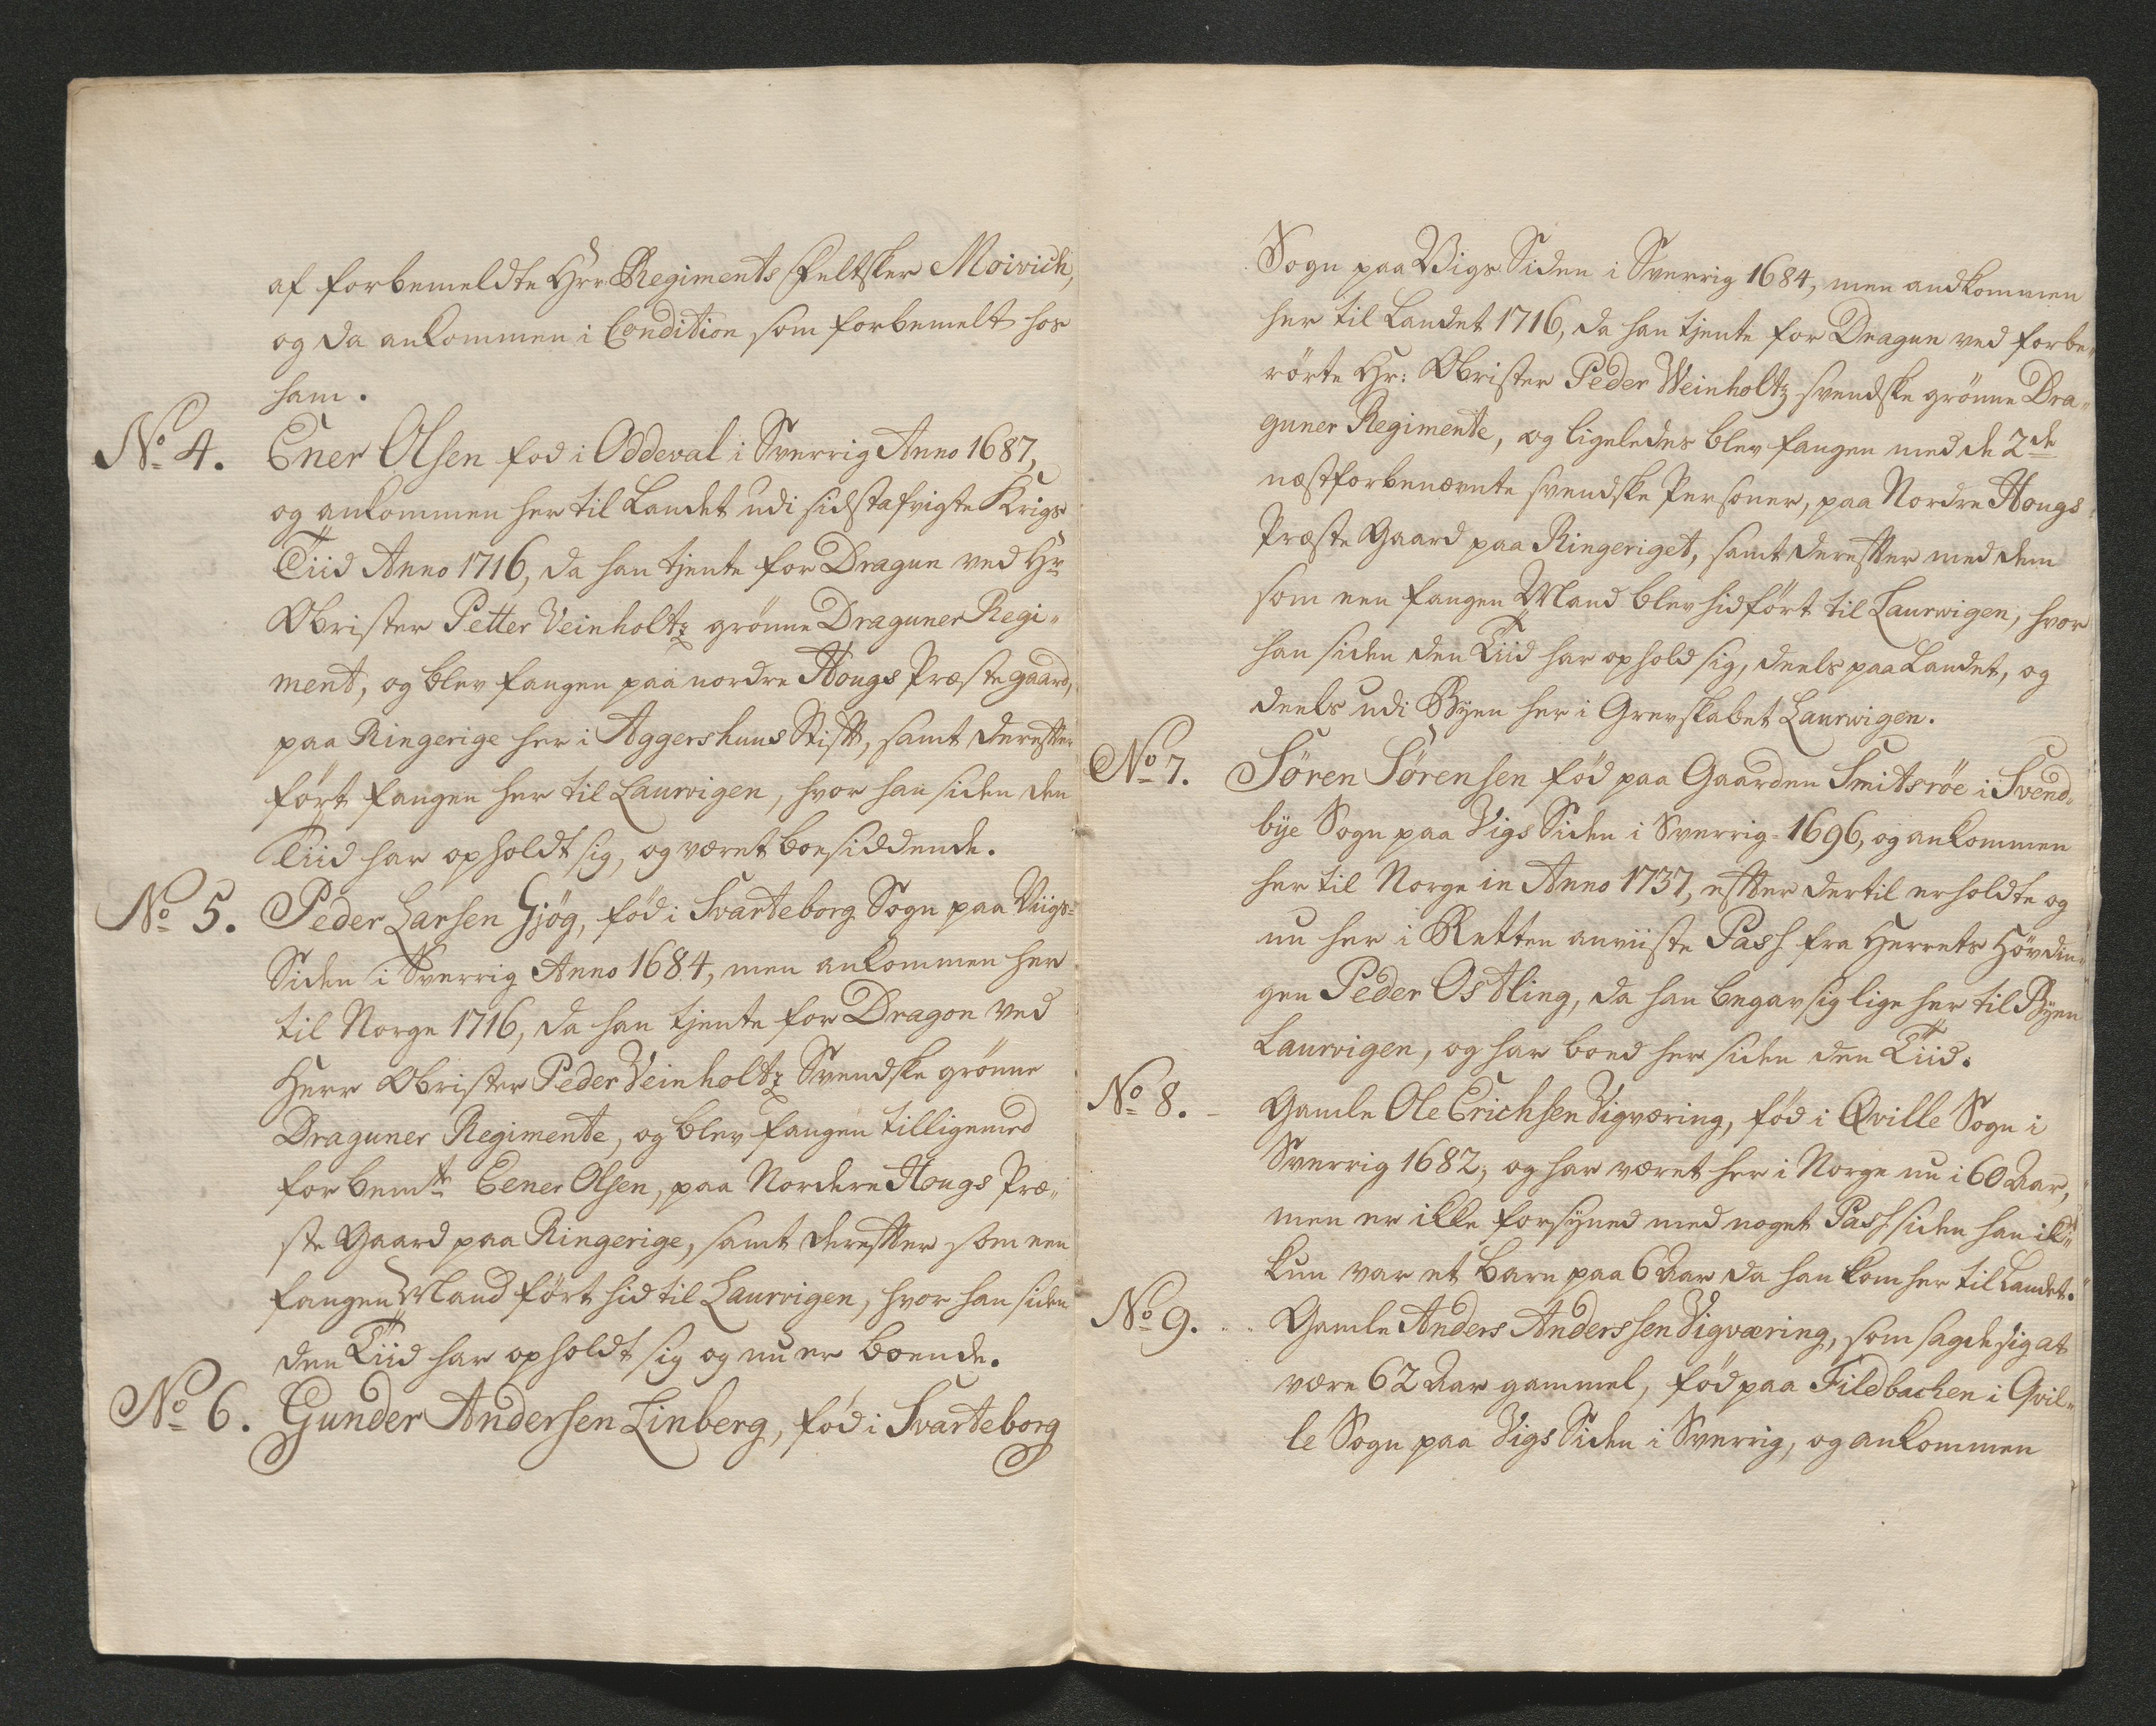 af forbemeldte Hrr Regiments feltsker Moivich,
og da ankommen i Condition som forbemelt hos
ham.
No 4. Ener Olsen fød i Oddeval i Sverrig Anno 1687,
og ankommen her til Landet udi sidstafvigte Krigs
Tiid Anno 1716, da han tjente for Dragun ved Hr
Obrister Petter Veinholtz grönne Draguner Regi-
ment, og blev fangen paa nordre Hougs Præstegaard,
paa Ringerige her i Aggershuus Stift, samt derefter
ført fangen her til Laurvigen, hvor han siden den
Tiid har opholdt sig, og været boesiddende.
No 5. Peder Larsen Gjög, föd i Svarteborg Sogn paa Viigs-
Siden i Sverrig Anno 1684, men ankommen her
til Norge 1716, da han tjente for Dragon ved
Herr Obrister Peder Veinholtz Svendske grönne
Draguner Regimente, og blev fangen tilligemed
forbemte Eener Olsen, paa Nordere Hougs Præ-
ste Gaard paa Ringerige, samt derefter som een
fangen Mand fört hid til Laurvigen, hvor han siden
den Tiid har opholdt sig og nu er boende.
No 6. Gunder Andersen Linberg, föd i Svarteborg
Sogn paa Vigs Siden i Sverrig 1684, men andkommen
her til Landet 1716, da han tjente for Dragun ved forbe-
rörte Hr: Obrister Peder Weinholtz svendske grönne Dra-
guner Regimente, og ligeledes blev fangen med de 2de
næstforbenævnte svendske Personer, paa Nordre Hougs
Præste Gaard paa Ringeriget, samt derefter med dem
som een fangen Mand blev hidfört til Laurwigen, hvor
han siden den Tiid har ophold sig, deels paa Landet, og
deels udi Byen her i Grevskabet Laurwigen.
No 7. Sören Sörensen föd paa Gaarden Smitsröe i Svend-
bÿe Sogn paa Vigs Siden i Sverrig 1696, og ankommen
her til Norge in Anno 1737, efter dertil erholdte og
nu her i Retten anviiste Pass fra Herrets Hövdin-
gen Peder Ostling, da han begav sig lige her til Byen
Laurvigen, og har boed her siden den Tiid.
No 8. Gamle Ole Erichsen Vigværing, föd i Qville Sogn i
Sverrig 1682, og har været her i Norge nu i 60 Aar,
men er ikke forsÿned med noget Pass siden han ik-
kun var et Barn paa 6 Aar da han kom her til Landet.
No 9. Gamle Anders Anderssen Vigværing, som sagde sig at
være 62 Aar gammel, föd paa Fildbachen i Qvil-
le Sogn paa Vigs Siden i Sverrig, og ankommen